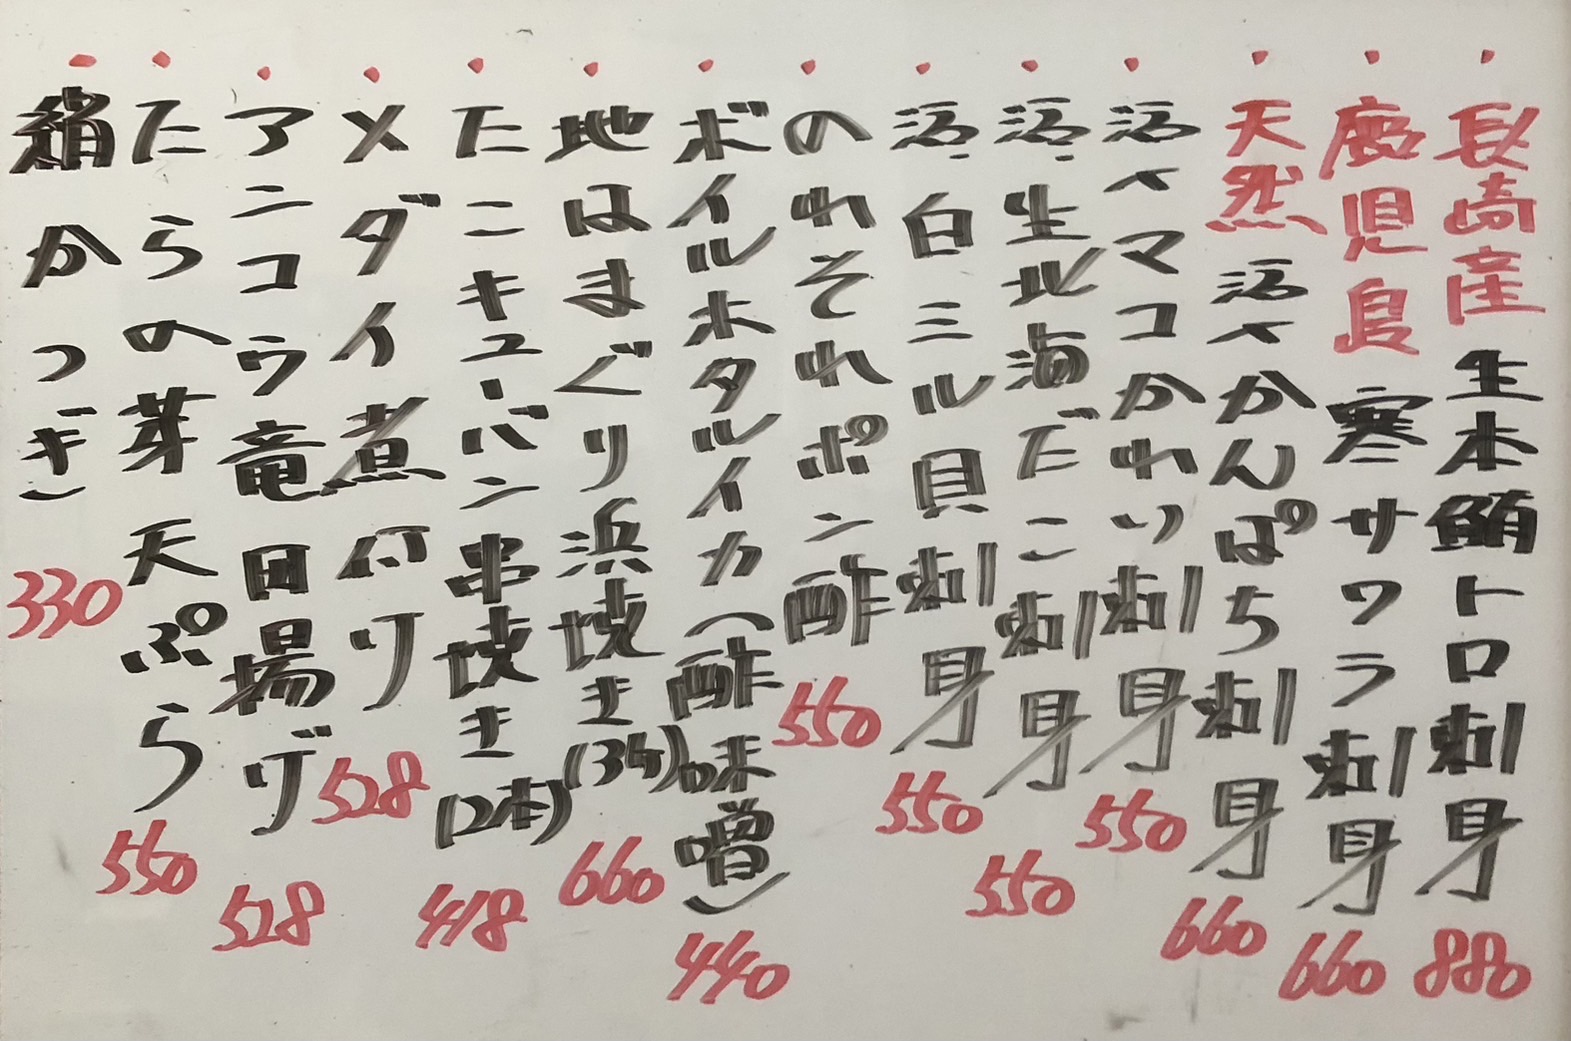 ・長崎産 生本鮪トロ刺身 880
・鹿児島 寒サワラ刺身 660
・天然 活〆かんぱち刺身 660
・活〆マコかれい刺身 550
・活 生北海だこ刺身 550
・活 白ミル貝刺身 550
・のれそれポン酢 550
・ボイルホタルイカ(酢味噌) 440
・地はまぐり浜焼き(3ケ) 660
・たこキューバン串焼き(2本) 418
・メダイ煮付け 528
・アンコウ竜田揚げ 528
・たらの芽天ぷら 550
・絹かつぎ 330